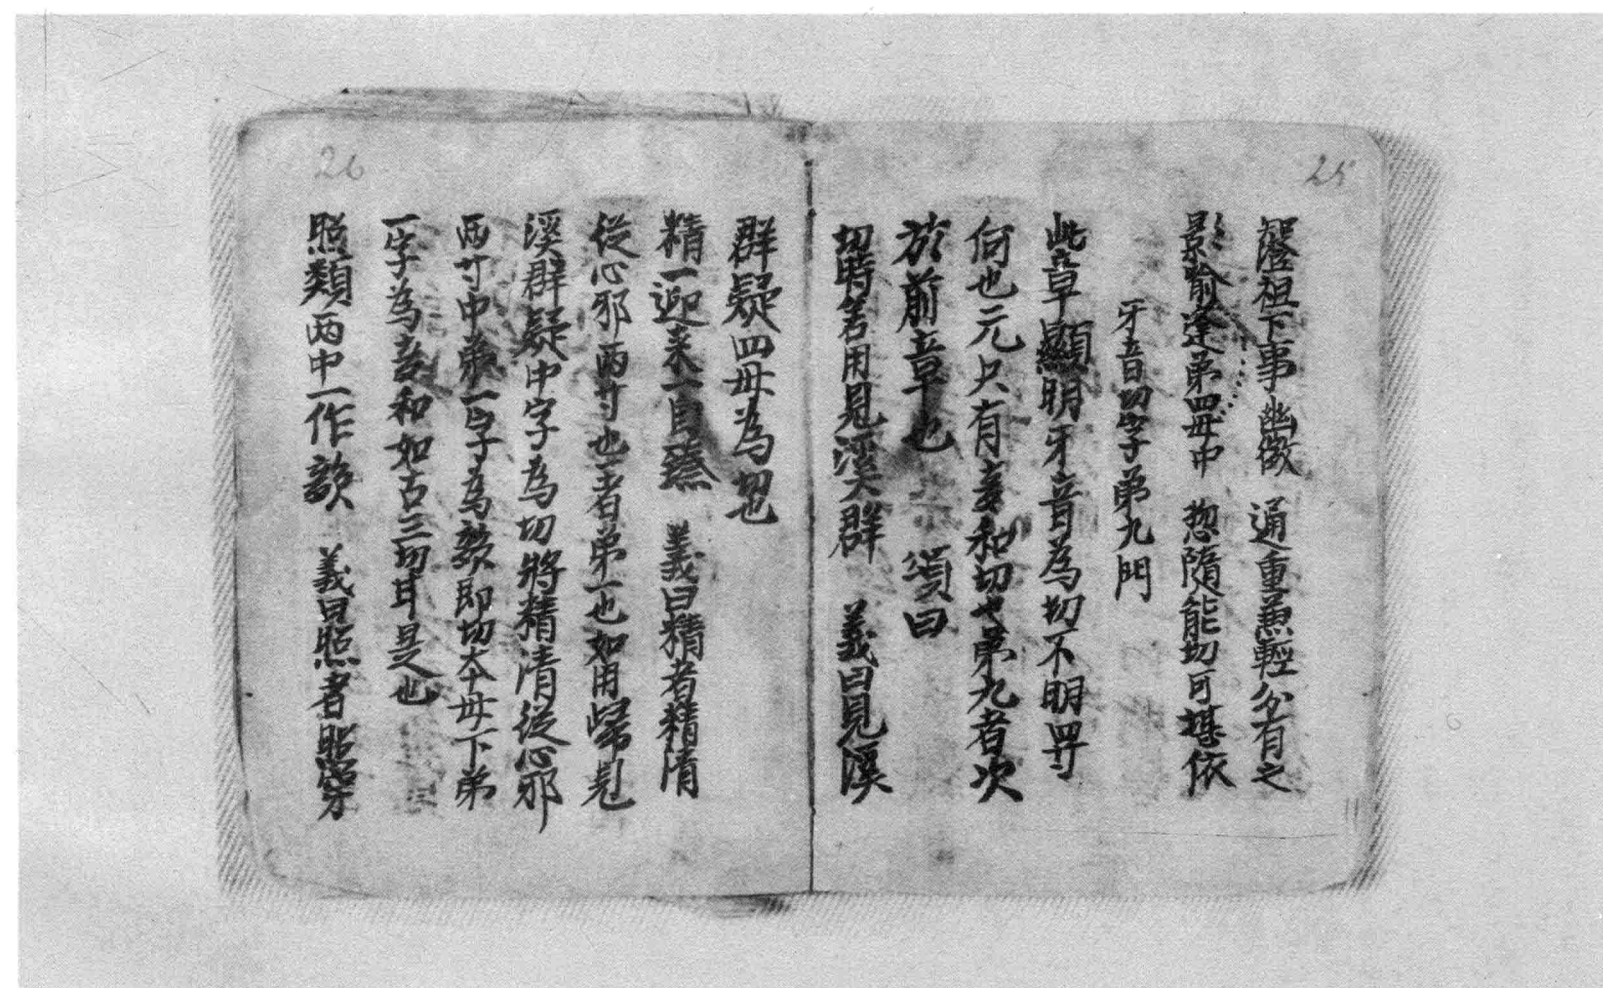 25
澄祖下事幽微 通重兼輕分有之
影喻逢第四母中 惣隨能切可堪依
牙音切字第九門
此章顯明牙音為切不明四寸
何也元只有麦和切也第九者次
於前章也 頌曰
切時若用見溪群 義曰見溪
26
群疑四母為切也
精一迎来一自臻 義曰精者精清
從心邪兩寸也一者第一也如用歸見
溪群疑中字為切將精清從心邪
两寸中第一字為韻即切本母下第
一字為麦和如古三切耳是也
照類两中一作韻 義曰照者照穿